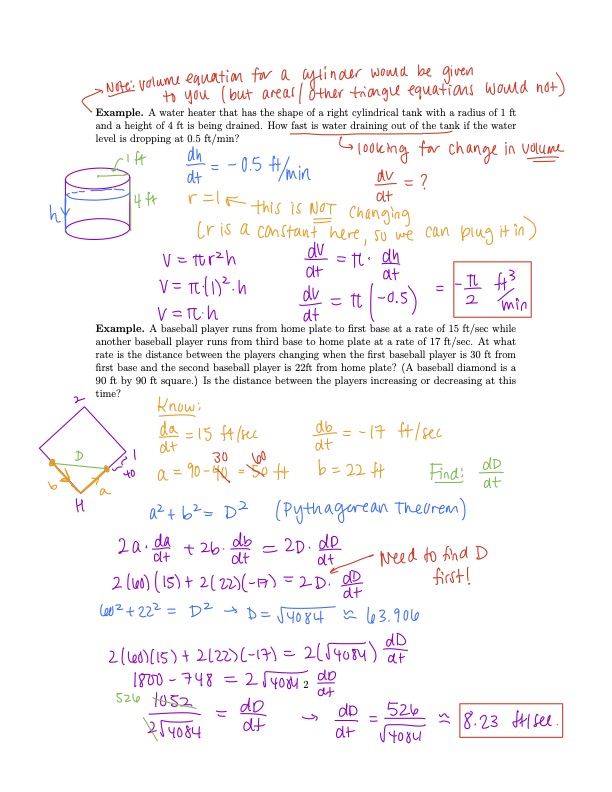 Note: volume equation for a cylinder would be given
to you (but areas/other triangle equations would not)
Example. A water heater that has the shape of a right cylindrical tank with a radius of 1 ft
and a height of 4 ft is being drained. How fast is water draining out of the tank if the water
level is dropping at 0.5 ft/min?
looking for change in volume
1 ft
4 ft
h
dh/dt = -0.5 ft/min
dV/dt = ?
r = 1 ← this is NOT changing
(r is a constant here, so we can plug it in)
V = πr²h
V = π·(1)²·h
V = π·h
dV/dt = π · dh/dt
dV/dt = π(-0.5) = -π/2 ft³/min
Example. A baseball player runs from home plate to first base at a rate of 15 ft/sec while
another baseball player runs from third base to home plate at a rate of 17 ft/sec. At what
rate is the distance between the players changing when the first baseball player is 30 ft from
first base and the second baseball player is 22ft from home plate? (A baseball diamond is a
90 ft by 90 ft square.) Is the distance between the players increasing or decreasing at this
time?
2
D
1
40
b
a
H
Know:
da/dt = 15 ft/sec
db/dt = -17 ft/sec
30 60
a = 90 - 40 = 50 ft
b = 22 ft
Find: dD/dt
a² + b² = D² (Pythagorean Theorem)
2a · da/dt + 2b · db/dt = 2D · dD/dt
Need to find D
first!
2(60)(15) + 2(22)(-17) = 2D · dD/dt
60² + 22² = D² → D = √4084 ≈ 63.906
2(60)(15) + 2(22)(-17) = 2(√4084) dD/dt
1800 - 748 = 2√4084 dD/dt
2
526
1052/2√4084 = dD/dt → dD/dt = 526/√4084 ≈ 8.23 ft/sec.